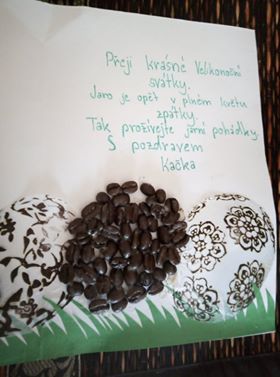 Přeji krásné Velikonoční
svátky.
Jaro je opět v plném květu
zpátky.
Tak prožívejte jarní pohádky.
S pozdravem
Kačka